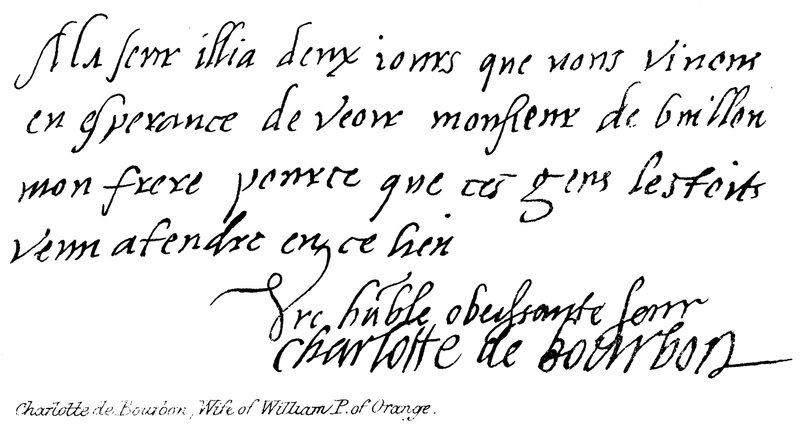 Ma seur illia deux iours que nous vinons
en esperance de veoir monsieur de buillon
mon frere pource que ces gens lestoits
venu atendre en ce lieu
vre hũble obeissante seur
charlotte de bourbon
Charlotte de Bourbon, Wife of William P. of Orange.